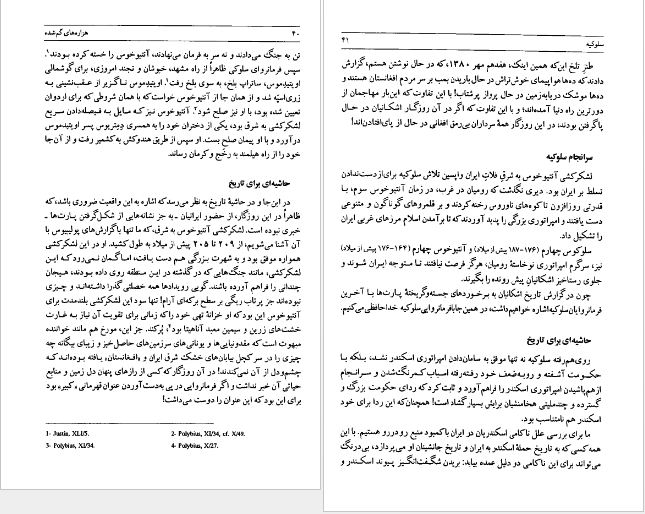 ۴۰ هزاره‌های گم‌شده
تن به جنگ می‌دادند و نه سر به فرمان می‌نهادند، آنتیوخوس را خسته کرده بودند¹.
سپس فرمانروای سلوکی ظاهراً از راه مشهد، خبوشان و نجند امروزی، برای گوشمالی
اویتیدموس، ساتراپ بلخ، به سوی بلخ رفت². اویتیدموس ناگزیر از عقب‌نشینی به
زری‌اسپه شد و از همان جا از آنتیوخوس خواست که با همان شروطی که برای اردوان
تعیین شده بود، با او نیز صلح شود³. آنتیوخوس نیز که مایل به فیصله‌دادن سریع
لشکرکشی به شرق بود، یکی از دختران خود را به همسری دمتریوس پسر اویتیدموس
درآورد و با او پیمان صلح بست. او سپس از طریق هندوکش به کشمیر رفت و از آن‌جا
خود را از راه هیلمند به رخج و کرمان رساند.
حاشیه‌ای برای تاریخ
در این‌جا و در حاشیهٔ تاریخ به نظر می‌رسد که اشاره به این واقعیت ضروری باشد، که
ظاهراً در این روزگار، از حضور ایرانیان ـ به جز نشانه‌هایی از شکل‌گرفتن پارت‌ها ـ
خبری نبوده است. لشکرکشی آنتیوخوس به شرق، که ما تنها با گزارش‌های پولیبیوس با
آن آشنا می‌شویم، از ۲۰۹ تا ۲۰۵ پیش از میلاد به طول کشید. او در این لشکرکشی
همواره موفق بود و به شهرت بزرگی هم دست یافت، اما گمان نمی‌رود که این
لشکرکشی، مانند جنگ‌هایی که در گذشته در این منطقه روی داده بودند، هیجان
چندانی را فراهم آورده باشد. گویی رویدادها همه خصلتی گذرا داشته‌اند و چیزی
نبوده‌اند جز پرتاب ریگی بر سطح برکه‌ای آرام! تنها سود این لشکرکشی بلندمدت برای
آنتیوخوس این بود که او خزانهٔ تهی خود را که زمانی برای تقویت آن نیاز به غارت
خشت‌های زرین و سیمین معبد آناهیتا بود⁴، پُر کند. جز این، مورخ هم مانند خواننده
مبهوت است که مقدونیایی‌ها و یونانی‌های سرزمین‌های حاصل‌خیز و زیبای بیگانه چه
چیزی را در سر کچل بیابان‌های خشک شرق ایران و افغانستان، یافته بوده‌اند که
چشم‌و‌دل از آن نمی‌کندند! در آن روزگار که کسی از رازهای پنهان دل زمین و منابع
حیاتی آن خبر نداشت و اگر فرمانروایی در پی به‌دست‌آوردن عنوان قهرمانی، کبیره بود
برای این بود که این عنوان را دوست می‌داشت!
1- Justin, XLI/5. 2- Polybius, XI/34, cf. X/49.
3- Polybius, XI/34. 4- Polybius, X/27.
سلوکیه ۴۱
طنز تلخ این‌که همین اینک، هفدهم مهر ۱۳۸۰، که در حال نوشتن هستم، گزارش
دادند که ده‌ها هواپیمای خوش‌تراش در حال باریدن بمب بر سر مردم افغانستان هستند و
ده‌ها موشک دریابه‌زمین در حال پرواز پرشتاب! با این تفاوت که این‌بار مهاجمان از
دورترین راه دنیا آمده‌اند؛ و با این تفاوت که اگر در آن روزگار اشکانیان در حال
پاگرفتن بودند، در این روزگار همهٔ سرداران بی‌رمق افغانی در حال از پای‌افتادن‌اند!
سرانجام سلوکیه
لشکرکشی آنتیوخوس به شرق فلات ایران واپسین تلاش سلوکیه برای ازدست‌ندادن
تسلط بر ایران بود. دیری نگذشت که رومیان در غرب، در زمان آنتیوخوس سوم، با
قدرتی روزافزون تا کوه‌های تاوروس رخنه کردند و بر قلمروهای گوناگون و متنوعی
دست یافتند و امپراتوری بزرگی را پدید آوردند که تا برآمدن اسلام مرزهای غربی ایران
را تشکیل داد.
سلوکوس چهارم (۱۷۶-۱۸۷ پیش از میلاد) و آنتیوخوس چهارم (۱۶۴-۱۷۶ پیش از میلاد)
نیز، سرگرم امپراتوری نوخاستهٔ رومیان، هرگز فرصت نیافتند تا متوجه ایران شوند و
جلوی رستاخیز اشکانیان پیش رونده را بگیرند.
چون در گزارش تاریخ اشکانیان به برخوردهای جسته‌وگریختهٔ پارت‌ها با آخرین
فرمانروایان سلوکیه اشاره خواهیم داشت، در همین جا با فرمانروایی سلوکیه خداحافظی می‌کنیم.
حاشیه‌ای برای تاریخ
روی‌هم‌رفته سلوکیه نه تنها موفق به سامان‌دادن امپراتوری اسکندر نشد، بلکه با
حکومت آشفته و روبه‌ضعف خود رفته‌رفته اسباب کم‌رنگ‌شدن و سرانجام
ازهم‌پاشیدن امپراتوری اسکندر را فراهم آورد و ثابت کرد که ردای حکومت بزرگ و
گسترده و چندملیتی هخامنشیان برایش بسیار گشاد است! همچنان‌که این ردا برای خود
اسکندر هم نامتناسب بود.
ما برای بررسی علل ناکامی اسکندریان در ایران با کمبود منبع رو در رو هستیم. با این
همه کسی که به تاریخ حملهٔ اسکندر به ایران و تاریخ جانشینان او می‌پردازد، بی‌درنگ
می‌تواند برای این ناکامی دو دلیل عمده بیابد: بریدن شگفت‌انگیز پیوند اسکندر و